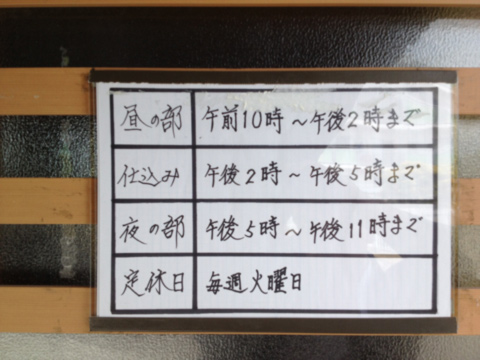 昼の部 午前10時～午後2時まで
仕込み 午後2時～午後5時まで
夜の部 午後5時～午後11時まで
定休日 毎週火曜日